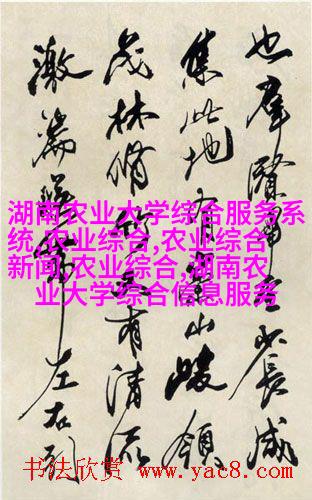 也羣賢畢至少長咸
集此地有崇山峻領
茂林脩竹又有清流
激湍暎帶左右引
湖南农业大学综合服务系
统,农业综合,农业综合
新闻,农业综合,湖南农
业大学综合信息服务
书法欣赏 www.yac8.com